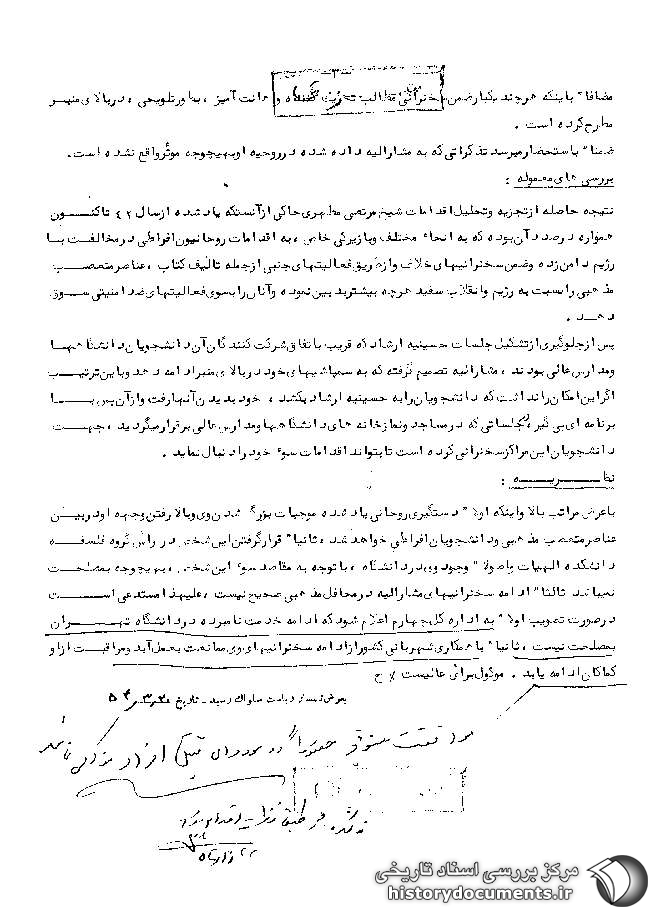 مضافا" باینکه هرچند یکبار ضمن سخنرانی مطالب تحریک کننده و اهانت آمیز ، بطور تلویحی ، در بالای منبر
مطرح کرده است .
ضمنا" باستحضار میرسد تذکراتی که به مشارالیه داده شده در روحیه او بهیچوجه موثر واقع نشده است .
بررسی های معموله :
نتیجه حاصله از تجزیه و تحلیل اقدامات شیخ مرتضی مطهری حاکی از آنستکه یاد شده از سال ۴۲ تاکنسون
همواره در صدد آن بوده که به انحاء مختلف و با زیرکی خاص ، به اقدامات روحانیون افراطی در مخالفت با
رژیم دامن زده و ضمن سخنرانیهای خلاف و از طریق فعالیتهای جنبی از جمله تالیف کتاب ، عناصر متعصب
مذهبی را نسبت به رژیم و انقلاب سفید هرچه بیشتر بد بین نموده و آنان را بسوی فعالیتهای ضد امنیتی سوق
دهد .
پس از جلوگیری از تشکیل جلسات حسینیه ارشاد که قریب باتفاق شرکت کنندگان آن دانشجویان دانشگاهها
و مدارس عالی بودند ، مشارالیه تصمیم گرفته که به سمپاشیهای خود در بالای منبر ادامه دهد و باین ترتیب
اگر این امکان را نداشت که دانشجویان را به حسینیه ارشاد بکشد ، خود بدیدن آنها رفت و از آن پس با
برنامه ای پی گیر ، بجلساتی که در مساجد و نمازخانه های دانشگاهها و مدارس عالی برقرار میگردید ، جهت
دانشجویان این مراکز سخنرانی کرده است تا بتواند اقدامات سوء خود را دنبال نماید .
نظریه :
با عرض مراتب بالا و اینکه اولا" دستگیری روحانی یاد شده موجبات بزرگ شدن وی و بالا رفتن وجهه او در بین
عناصر متعصب مذهبی و دانشجویان افراطی خواهد شد ، ثانیا" قرار گرفتن این شخص در راس گروه فلسفه
دانشکده الهیات و اصولا" وجود وی در دانشگاه ، با توجه به مقاصد سوء این شخص ، بهیچوجه بمصلحت
نمیباشد ثالثا" ادامه سخنرانیهای مشارالیه در محافل مذهبی صحیح نیست ، علیهذا مستدعی است
در صورت تصویب اولا" به اداره کل چهارم اعلام شود که ادامه خدمت نامبرده در دانشگاه تهران
بمصلحت نیست ، ثانیا" با همکاری شهربانی کشور از ادامه سخنرانیهای وی ممانعت بعمل آید و مراقبت از او
کماکان ادامه یابد . موکول برای عالیست ٪ ح
بعرض تیمسار ریاست ساواک رسید - تاریخ
مرکز بررسی اسناد تاریخی
historydocuments.ir